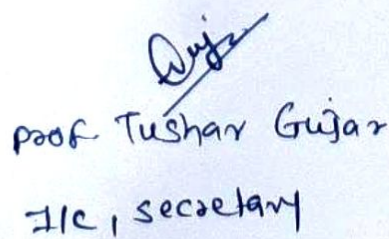 Prof Tushar Gujar
I/C, secretary